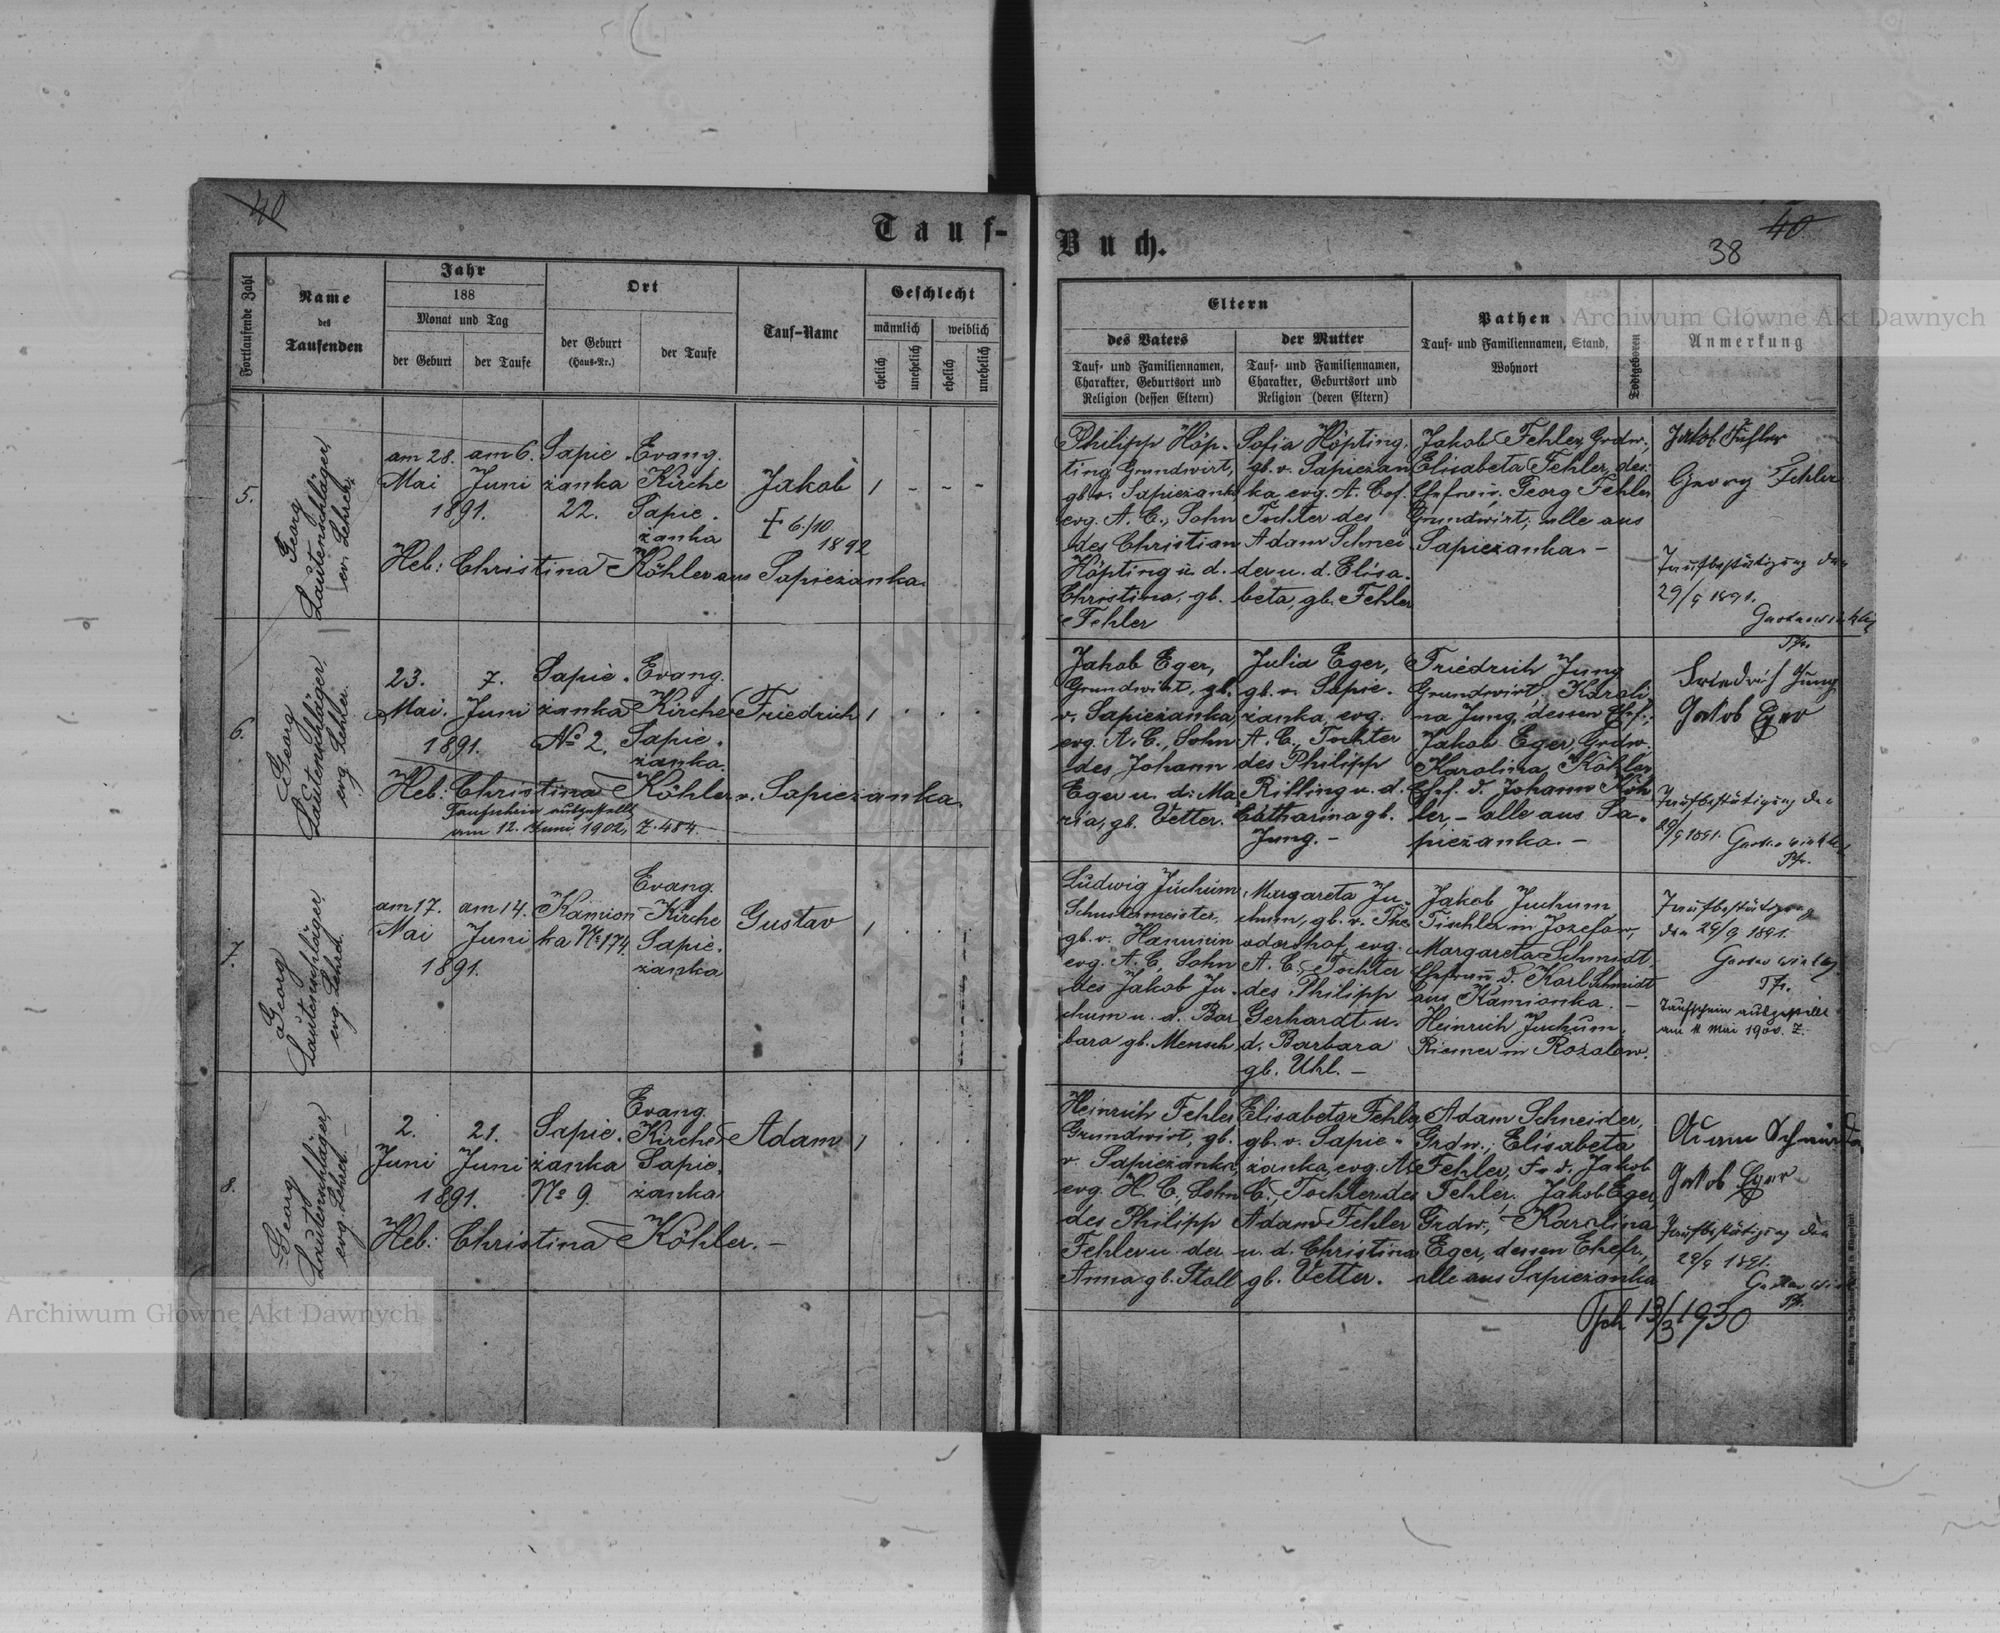 40
Tauf-
Fortlaufende Zahl
Name
des
Taufenden
Jahr
188
Monat und Tag
der Geburt
der Taufe
Ort
der Geburt
(Haus-Nr.)
der Taufe
Tauf-Name
Geschlecht
männlich
weiblich
ehelich
unehelich
ehelich
unehelich
5.
Georg
Lautenschläger
ev. Lehrer
am 28.
Mai
am 6.
Juni
1891.
Sapie
żanka
22.
Evang.
Kirche
Sapie.
żanka
Jakob
† 6./10
1892
1 - - -
Heb: Christina Köhler aus Sapieżanka.
6.
Georg
Lautenschläger,
evg. Lehrer.
23.
Mai.
7.
Juni
1891.
Sapie.
żanka
No 2.
Evang.
Kirche
Sapie.
żanka.
Friedrich
1 . . .
Heb: Christina Köhler v. Sapieżanka.
Taufschein ausgestellt
am 12. Juni 1902, Z. 484.
7.
Georg
Lautenschläger,
evg. Lehrer.
am 17.
Mai
am 14.
Juni
1891.
Kamion
ka No 174.
Evang.
Kirche
Sapie.
żanka
Gustav
1 . .
8.
Georg
Lautenschläger,
evg. Lehrer. –
2.
Juni
21.
Juni
1891.
Sapie.
żanka
No 9.
Evang.
Kirche
Sapie,
żanka
Adam
1 . . .
Heb: Christina Köhler. –
Archiwum Główne Akt Dawnych
Buch.
40
38
Eltern
des Vaters
Tauf- und Familiennamen,
Charakter, Geburtsort und
Religion (dessen Eltern)
der Mutter
Tauf- und Familiennamen,
Charakter, Geburtsort und
Religion (deren Eltern)
Pathen
Tauf- und Familiennamen, Stand,
Wohnort
Todtgeboren
Anmerkung
Archiwum Główne Akt Dawnych
Philipp Höp-
ting Grundwirt,
gb. v. Sapieżank
evg. A. C., Sohn
des Christian
Höpting u. d.
Christina, gb.
Fehler
Sofia Höpting,
gb. v. Sapieżan
ka, evg. A. Cof.
Tochter des
Adam Schnei
der u. d. Elisa.
beta, gb. Fehler
Jakob Fehler, Grdw.,
Elisabeta Fehler, des:
Ehefrau, Georg Fehler
Grundwirt, alle aus
Sapieżanka. –
Jakob Fehler
Georg Fehler
Taufbestätigung den
29/9 1891.
Pfr.
Jakob Eger,
Grundwirt, gb.
v. Sapieżanka,
evg. A. C., Sohn
des Johann
Eger u. d. Ma
ria, gb. Vetter.
Julia Eger,
gb. v. Sapie.
żanka, evg.
A. C., Tochter
des Philipp
Rilling u. d.
Catharina gb.
Jung. –
Friedrich Jung
Grundwirt, Karoli.
na Jung, dessen Ehef.,
Jakob Eger, Grdw.
Karolina Köhler
Ehef. d. Johann Köh
ler – alle aus Sa.
pieżanka. –
Friedrich Jung
Jakob Eger
Taufbestätigung den
29/9 1891.
Pfr.
Ludwig Juchum,
Schustermeister,
gb. v. Hanunin
evg. A. C., Sohn
des Jakob Ju.
chum u. d. Bar
bara gb. Mensch
Margareta Ju.
chum, gb. v. The
odorshof, evg.
A. C., Tochter
des Philipp
Gerhardt u.
d. Barbara
gb. Uhl. –
Jakob Juchum
Tischler in Jozefow,
Margareta Schmidt,
Ehefrau d. Karl Schmidt
aus Kamionka. –
Heinrich Juchum,
Riemer in Rozalow.
Taufbestätigung
den 29/9 1891.
Pfr.
Taufschein ausgestellt
am 11 Mai 1900. Z.
Heinrich Fehler
Grundwirt, gb.
v. Sapieżanka,
evg. H. C., Sohn
des Philipp
Fehler u. der
Anna gb. Stall
Elisabeta Fehler
gb. v. Sapie-
żanka, evg. A.
C., Tochter des
Adam Fehler
u. d. Christina
gb. Vetter.
Adam Schneider,
Grdw., Elisabeta
Fehler, Fr. d. Jakob
Fehler, Jakob Eger,
Grdw., Karolina
Eger, dessen Ehefr.,
alle aus Sapieżanka
Adam Schneider
Jakob Eger
Taufbestätigung den
29/9 1891.
Pfr.
13/3 1930